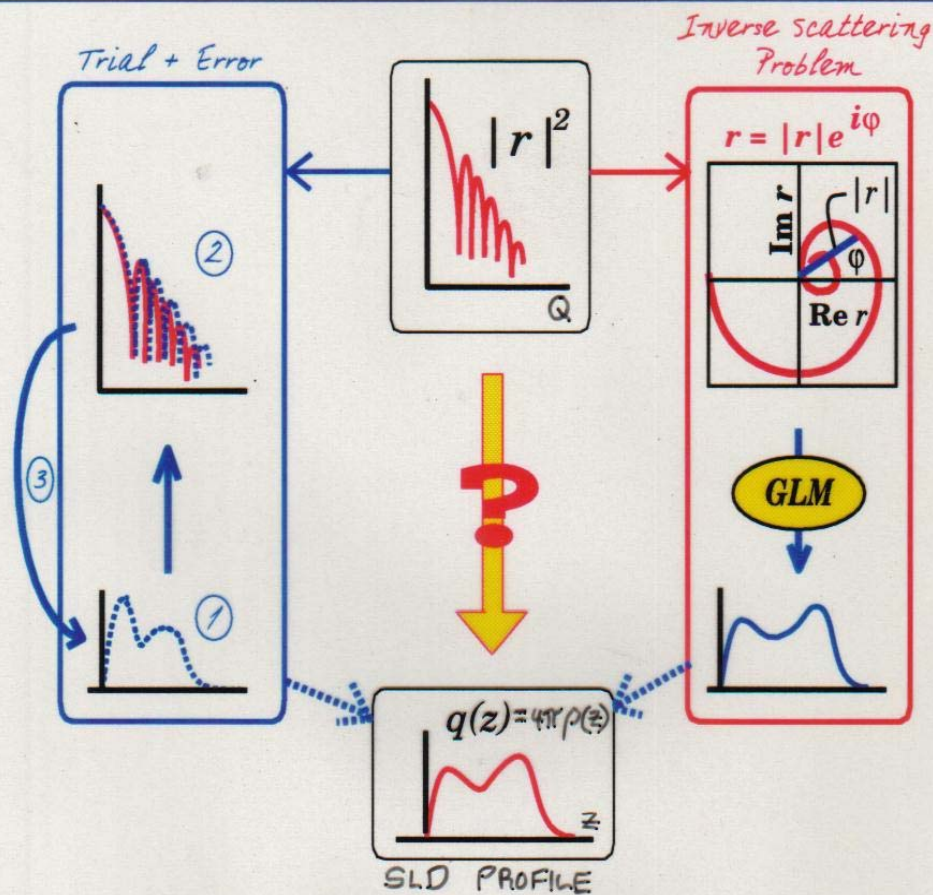 Trial + Error
Inverse Scattering
Problem
|r|²
Q
r = |r| e^{iφ}
Im r
|r|
φ
Re r
2
3
?
GLM
1
q(z) = 4πρ(z)
z
SLD PROFILE